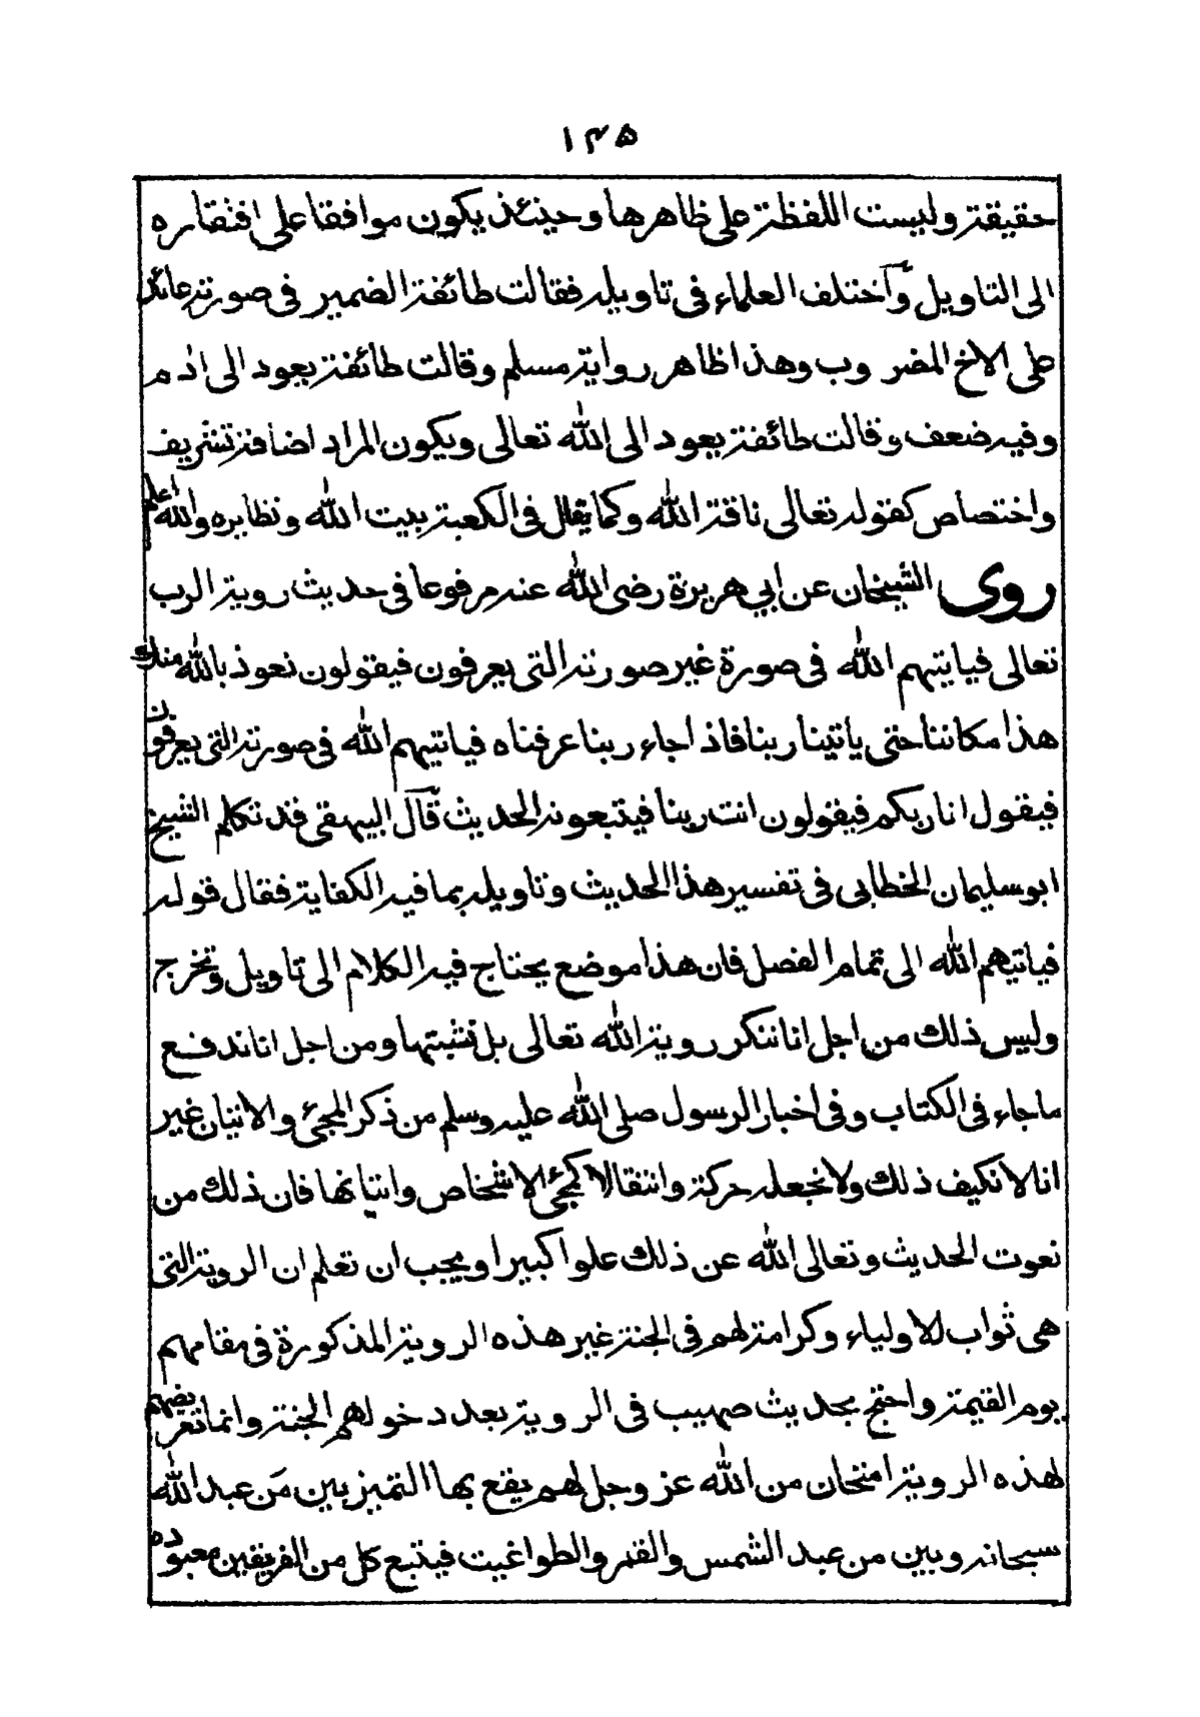 ١٣٥
حقيقة وليست اللفظة على ظاهرها وحينئذ يكون موافقا على افتقاره
الى التاويل وآختلف العلماء فى تاويله فقالت طائفة الضمير فى صورته عائد
على الاخ المضروب وهذا ظاهر رواية مسلم وقالت طائفة يعود الى ادم
وفيه ضعف وقالت طائفة يعود الى الله تعالى ويكون المراد اضافة تشريف
واختصاص كقوله تعالى ناقة الله وكما يقال فى الكعبة بيت الله ونظايره والله اعلم
روى الشيخان عن ابي هريرة رضى الله عنه مرفوعا فى حديث روية الرب
تعالى فياتيهم الله فى صورة غير صورته التى يعرفون فيقولون نعوذ بالله منك
هذا مكاننا حتى ياتينا ربنا فاذا جاء ربنا عرفناه فياتيهم الله فى صورته التى يعرفون
فيقول انا ربكم فيقولون انت ربنا فيتبعونه الحديث قآل البيهقى قد تكلم الشيخ
ابو سليمان الخطابى فى تفسير هذا الحديث وتاويله بما فيه الكفاية فقال قوله
فياتيهم الله الى تمام الفصل فان هذا موضع يحتاج فيه الكلام الى تاويل وتخرج
وليس ذلك من اجل انا ننكر روية الله تعالى بل نثبتها ومن اجل انا ندفع
ما جاء فى الكتاب وفى اخبار الرسول صلى الله عليه وسلم من ذكر المجئ والاتيان غير
انا لا نكيف ذلك ولا نجعله حركة وانتقالا كمجئ الاشخاص واتيانها فان ذلك من
نعوت الحديث وتعالى الله عن ذلك علوا كبيرا ويجب ان تعلم ان الروية التى
هى ثواب للاولياء وكرامة لهم فى الجنة غير هذه الروية المذكورة فى مقامهم
يوم القيمة واحتج بحديث صهيب فى الروية بعد دخولهم الجنة وانما تعريضهم
لهذه الروية امتحان من الله عز وجل لهم يقع بها التميز بين من عبد الله
سبحانه وبين من عبد الشمس والقمر والطواغيت فيتبع كل من الفريقين معبوده